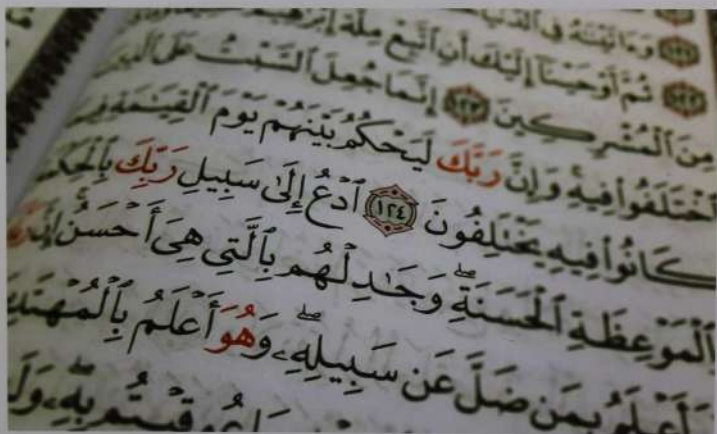 وَءَاتَيْنَٰهُ فِى ٱلدُّنْيَا
١٢٢ ثُمَّ أَوْحَيْنَآ إِلَيْكَ أَنِ ٱتَّبِعْ مِلَّةَ
مِنَ ٱلْمُشْرِكِينَ ١٢٣ إِنَّمَا جُعِلَ ٱلسَّبْتُ عَلَى ٱلَّذِينَ
ٱخْتَلَفُوا۟ فِيهِ ۚ وَإِنَّ رَبَّكَ لَيَحْكُمُ بَيْنَهُمْ يَوْمَ ٱلْقِيَٰمَةِ فِيمَا
كَانُوا۟ فِيهِ يَخْتَلِفُونَ ١٢٤ ٱدْعُ إِلَىٰ سَبِيلِ رَبِّكَ
ٱلْمَوْعِظَةِ ٱلْحَسَنَةِ ۖ وَجَٰدِلْهُم بِٱلَّتِى هِىَ أَحْسَنُ ۚ إِنَّ
أَعْلَمُ بِمَن ضَلَّ عَن سَبِيلِهِۦ ۖ وَهُوَ أَعْلَمُ
بِهِۦ ۖ